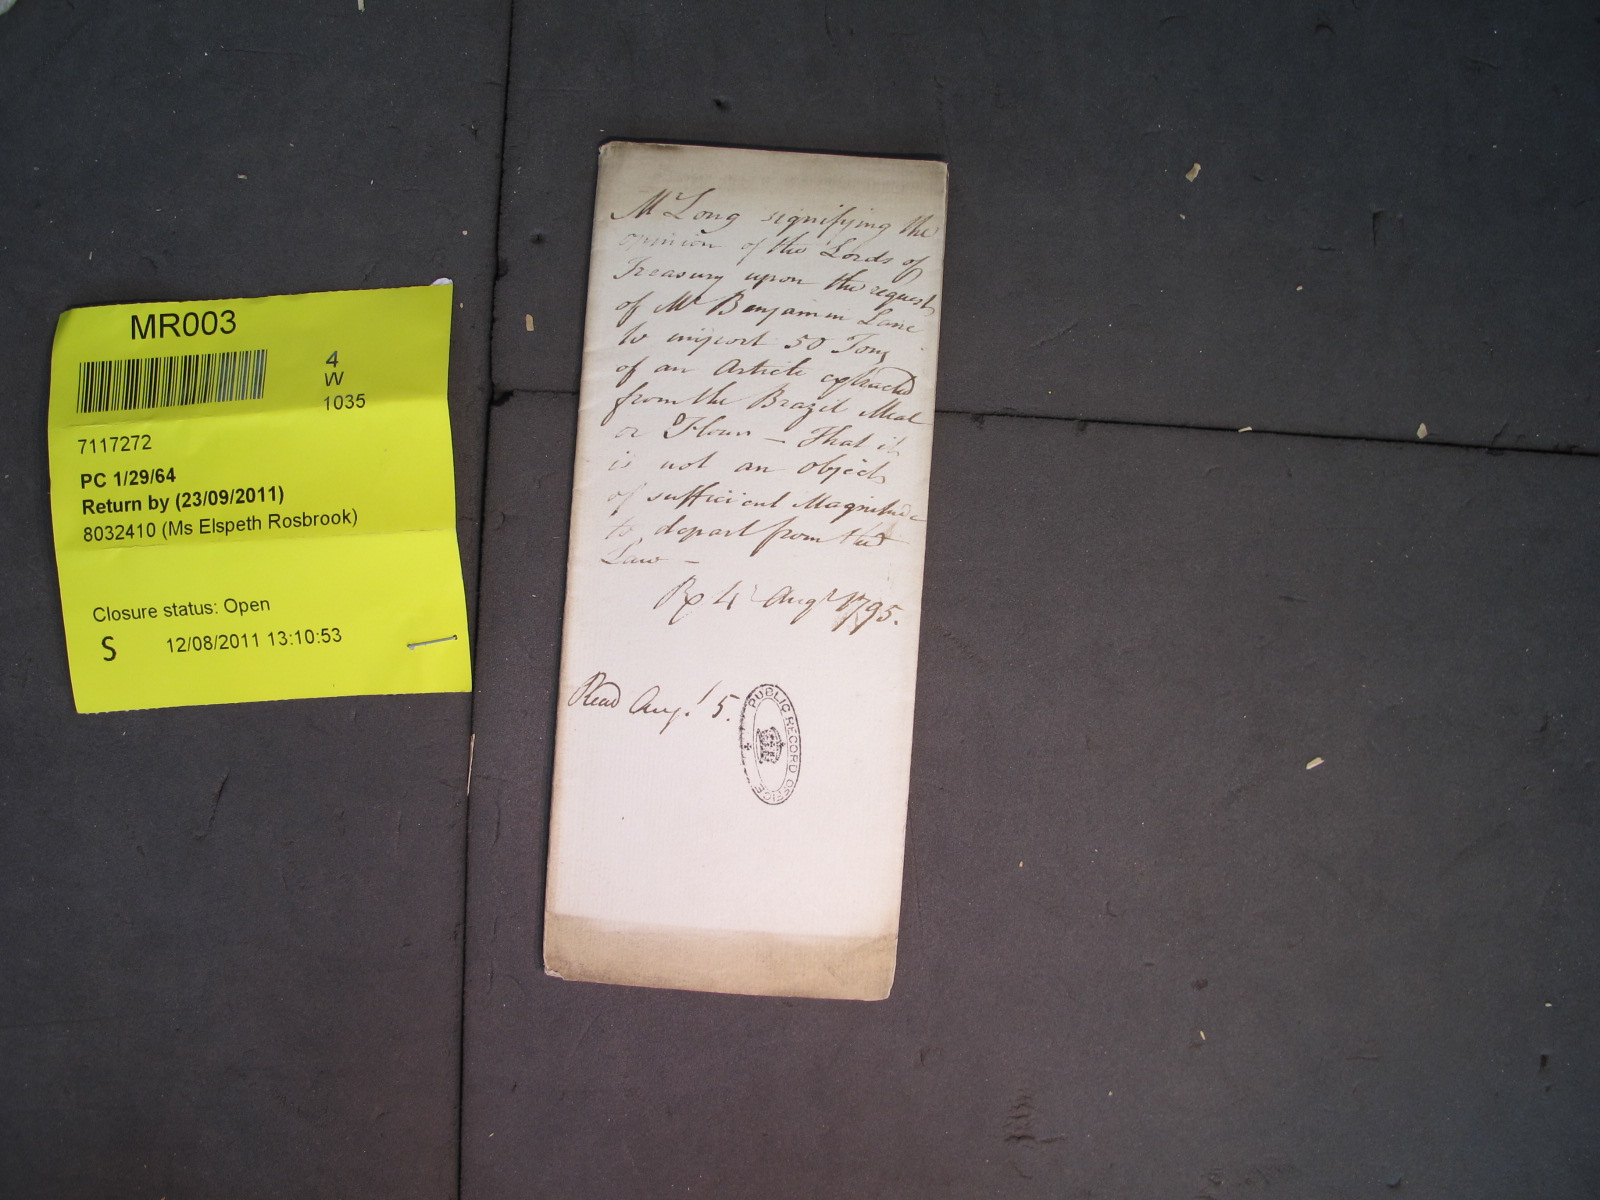 MR003
4
W
1035
7117272
PC 1/29/64
Return by (23/09/2011)
8032410 (Ms Elspeth Rosbrook)
Closure status: Open
S 12/08/2011 13:10:53
Mr Long signifying the
opinion of the Lords of
Treasury upon the request
of Mr Benjamin Lane
to import 50 Tons
of an Article extracted
from the Brazil Meal
or Flour — That it
is not an object
of sufficient Magnitude
to depart from the
Law —
Rx 4 Augt 1795.
Read Augt 5.
PUBLIC RECORD OFFICE